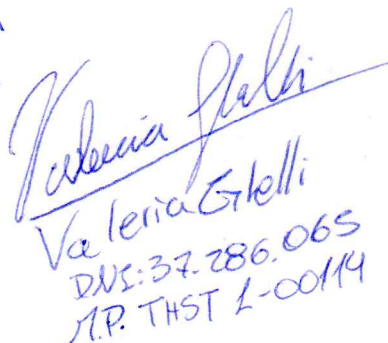 Valeria
Valeria Gilelli
DNI: 37.286.065
M.P. THST 1-00114